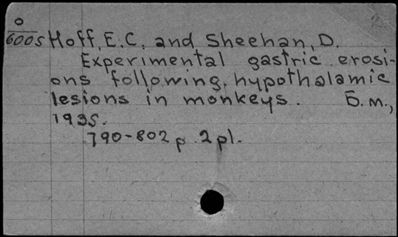 O
6005 Hoff, E.C. and Sheehan, D.
Experimental gastric erosi-
ons following hypothalamic
lesions in monkeys. Б.м.,
1935.
790-802 p. 2 pl.